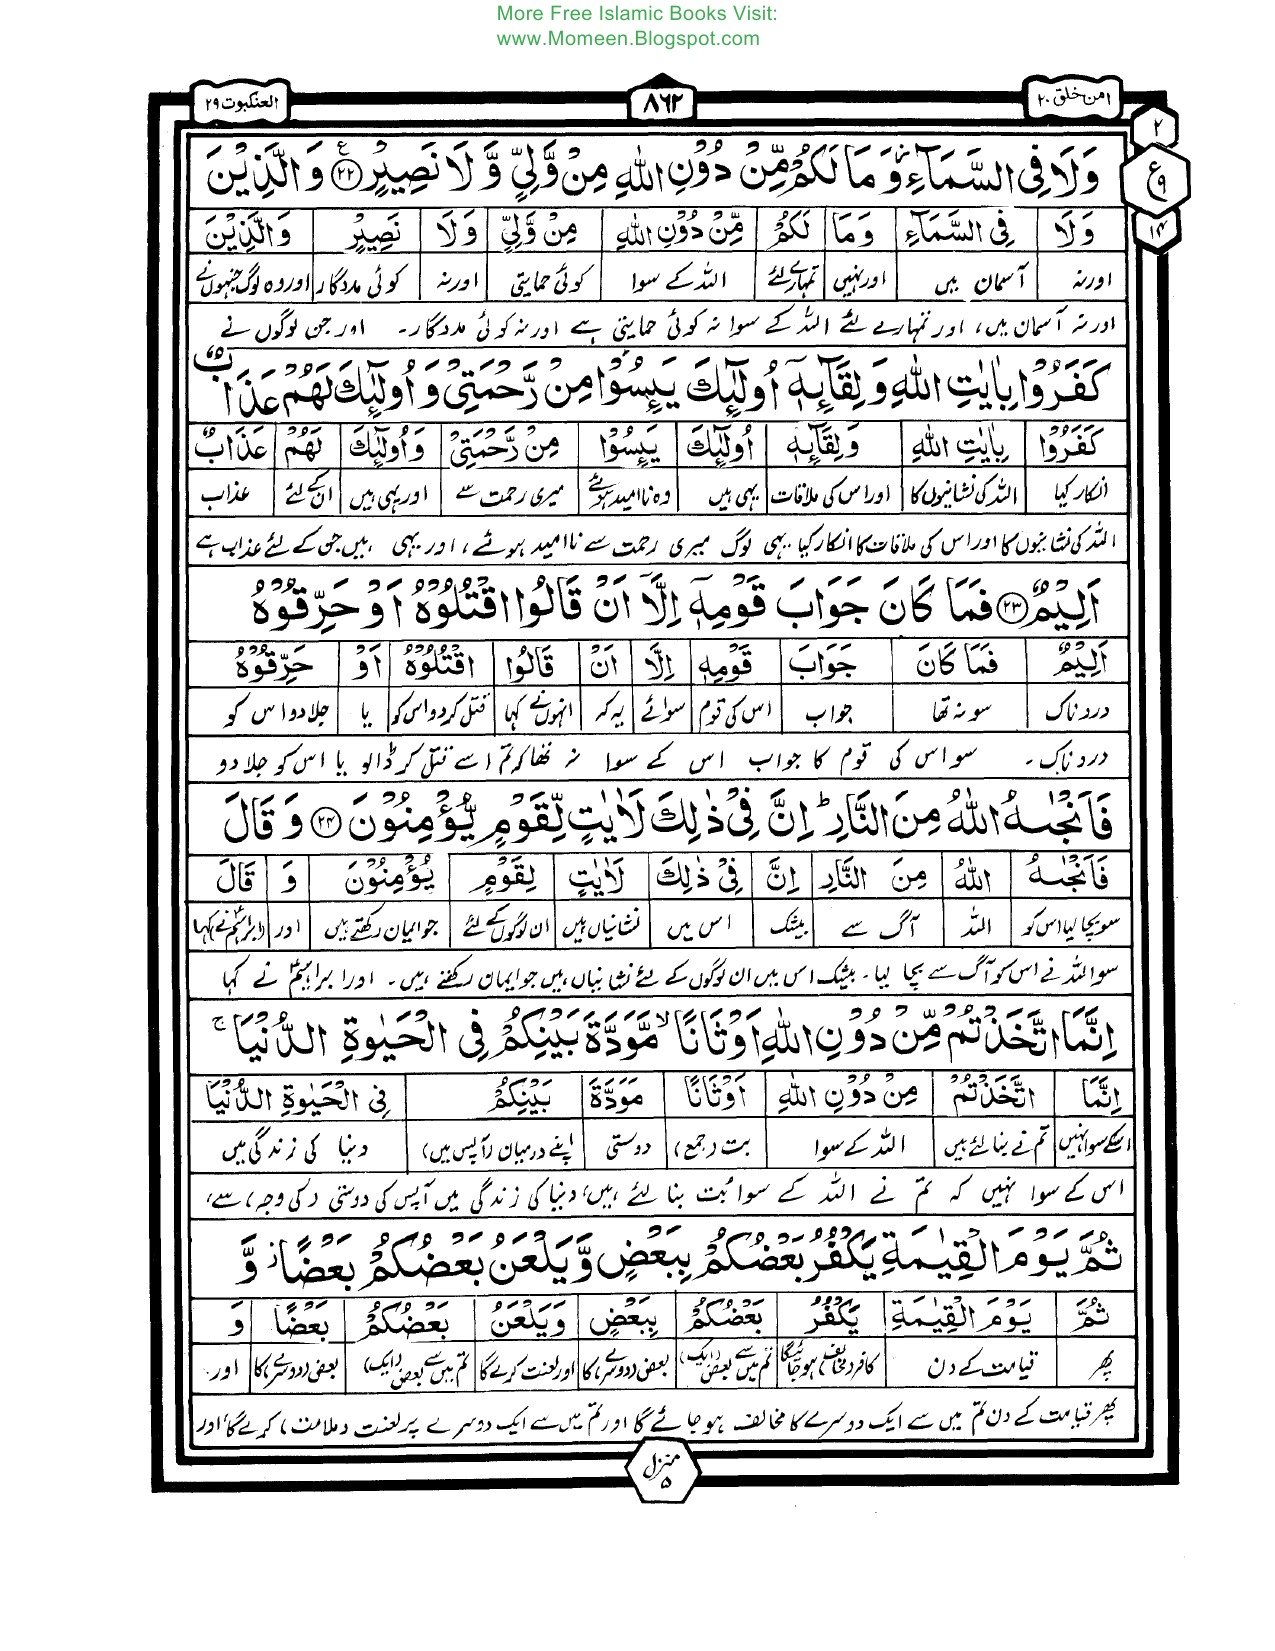 More Free Islamic Books Visit:
www.Momeen.Blogspot.com
امن خلق ۲۰
۸۶۲
العنکبوت ۲۹
۲
ع ۹
۱۴
وَلَا فِى السَّمَآءِ ؗ وَمَا لَكُمْ مِّنْ دُوْنِ اللّٰهِ مِنْ وَّلِيٍّ وَّلَا نَصِيْرٍ ﴿۲۲﴾ ع وَالَّذِيْنَ
وَلَا فِى السَّمَآءِ وَمَا لَكُمْ مِّنْ دُوْنِ اللّٰهِ مِنْ وَّلِيٍّ وَلَا نَصِيْرٍ وَالَّذِيْنَ
اورنہ آسمان میں اورنہیں تمہارے لئے اللہ کے سوا کوئی حمایتی اورنہ کوئی مددگار اوروہ لوگ جنہوں نے
اورنہ آسمان میں، اور تمہارے لئے اللہ کے سوا نہ کوئی حمایتی ہے اور نہ کوئی مددگار۔ اور جن لوگوں نے
كَفَرُوْا بِاٰيٰتِ اللّٰهِ وَلِقَآئِهٖٓ اُولٰٓئِكَ يَئِسُوْا مِنْ رَّحْمَتِيْ وَاُولٰٓئِكَ لَهُمْ عَذَابٌ
كَفَرُوْا بِاٰيٰتِ اللّٰهِ وَلِقَآئِهٖٓ اُولٰٓئِكَ يَئِسُوْا مِنْ رَّحْمَتِيْ وَاُولٰٓئِكَ لَهُمْ عَذَابٌ
انکار کیا اللہ کی نشانیوں کا اور اس کی ملاقات یہی ہیں وہ ناامید ہوئے میری رحمت سے اور یہی ہیں ان کے لئے عذاب
اللہ کی نشانیوں کا اور اس کی ملاقات کا انکار کیا یہی لوگ میری رحمت سے ناامید ہوئے، اور یہی ہیں جن کے لئے عذاب ہے
اَلِيْمٌ ﴿۲۳﴾ فَمَا كَانَ جَوَابَ قَوْمِهٖٓ اِلَّآ اَنْ قَالُوا اقْتُلُوْهُ اَوْ حَرِّقُوْهُ
اَلِيْمٌ فَمَا كَانَ جَوَابَ قَوْمِهٖ اِلَّا اَنْ قَالُوا اقْتُلُوْهُ اَوْ حَرِّقُوْهُ
دردناک سو نہ تھا جواب اس کی قوم سوائے یہ کہ انہوں نے کہا قتل کردو اس کو یا جلا دو اس کو
دردناک۔ سو اس کی قوم کا جواب اس کے سوا نہ تھا کہ تم اسے قتل کر ڈالو یا اس کو جلا دو
فَاَنْجٰىهُ اللّٰهُ مِنَ النَّارِ ؕ اِنَّ فِيْ ذٰلِكَ لَاٰيٰتٍ لِّقَوْمٍ يُّؤْمِنُوْنَ ﴿۲۴﴾ وَقَالَ
فَاَنْجٰىهُ اللّٰهُ مِنَ النَّارِ اِنَّ فِيْ ذٰلِكَ لَاٰيٰتٍ لِقَوْمٍ يُؤْمِنُوْنَ وَ قَالَ
سو بچا لیا اس کو اللہ آگ سے بیشک اس میں نشانیاں ہیں ان لوگوں کے لئے جو ایمان رکھتے ہیں اور (ابراہیمؑ نے) کہا
سو اللہ نے اس کو آگ سے بچا لیا۔ بیشک اس میں ان لوگوں کے لئے نشانیاں ہیں جو ایمان رکھتے ہیں۔ اور ابراہیمؑ نے کہا
اِنَّمَا اتَّخَذْتُمْ مِّنْ دُوْنِ اللّٰهِ اَوْثَانًا ۙ مَّوَدَّةَ بَيْنِكُمْ فِى الْحَيٰوةِ الدُّنْيَا ۚ
اِنَّمَا اتَّخَذْتُمْ مِنْ دُوْنِ اللّٰهِ اَوْثَانًا مَوَدَّةَ بَيْنِكُمْ فِى الْحَيٰوةِ الدُّنْيَا
اسکے سوا نہیں تم نے بنا لئے ہیں اللہ کے سوا بت (جمع) دوستی اپنے درمیان (آپس میں) دنیا کی زندگی میں
اس کے سوا نہیں کہ تم نے اللہ کے سوا بت بنا لئے ہیں، دنیا کی زندگی میں آپس کی دوستی (کی وجہ) سے،
ثُمَّ يَوْمَ الْقِيٰمَةِ يَكْفُرُ بَعْضُكُمْ بِبَعْضٍ وَّيَلْعَنُ بَعْضُكُمْ بَعْضًا ؗ وَّ
ثُمَّ يَوْمَ الْقِيٰمَةِ يَكْفُرُ بَعْضُكُمْ بِبَعْضٍ وَيَلْعَنُ بَعْضُكُمْ بَعْضًا وَ
پھر قیامت کے دن کافر (مخالف) ہو جائیگا تم میں سے بعض (ایک) بعض (دوسرے) کا اور لعنت کرے گا تم میں سے بعض (ایک) بعض (دوسرے) کا اور
پھر قیامت کے دن تم میں سے ایک دوسرے کا مخالف ہو جائے گا اور تم میں سے ایک دوسرے پر لعنت (ملامت) کرے گا، اور
منزل ۵